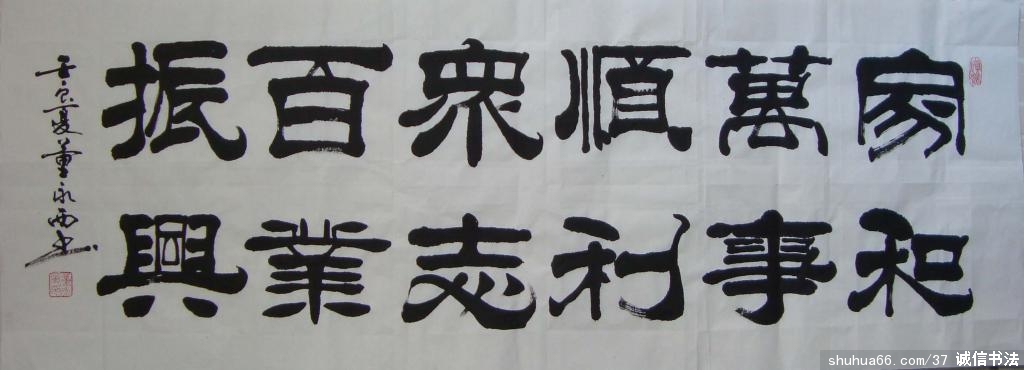 家和
萬事
順利
衆志
百業
振興
壬辰夏董永西书
shuhua66.com/37 诚信书法